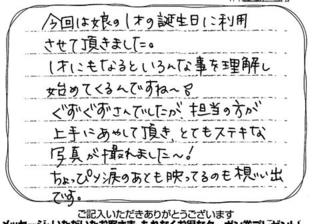 今回は娘の1才の誕生日に利用
させて頂きました。
1才にもなるといろんな事を理解し
始めてくるんですね〜
ぐずぐずさんでしたが担当の方が
上手にあやして頂き、とてもステキな
写真が撮れました〜!
ちょっぴり涙のあとも映ってるのも想い出
です。
ご記入いただきありがとうございます